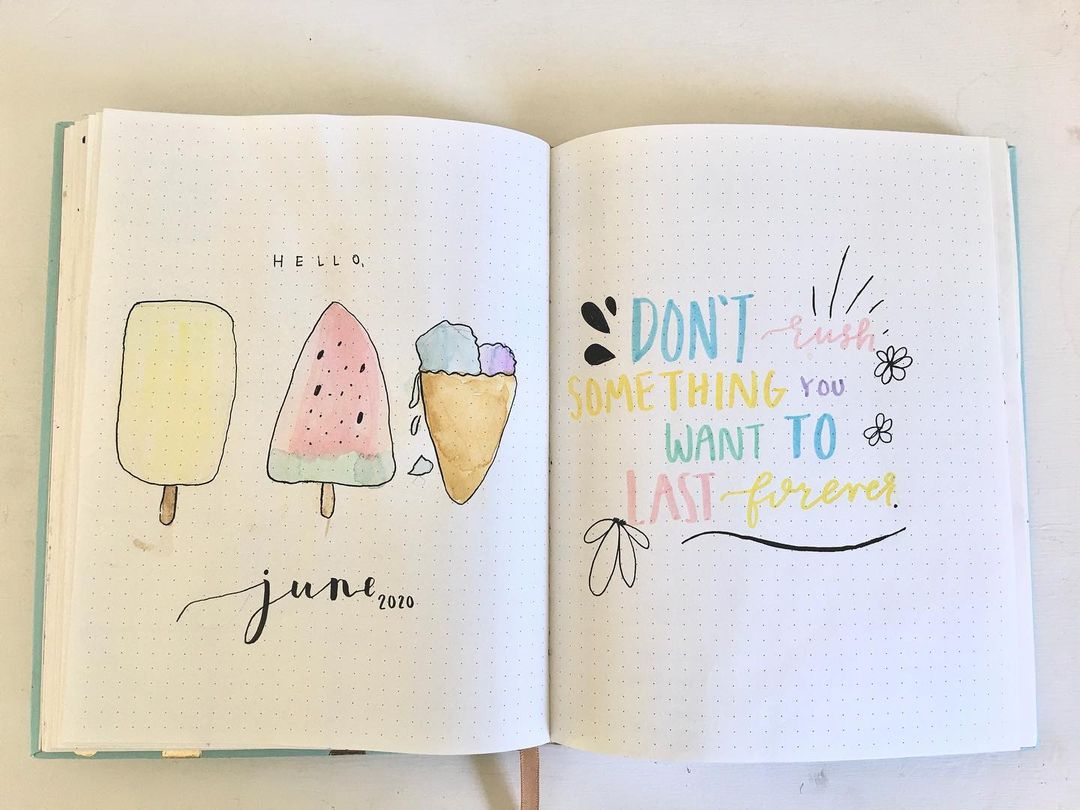 HELLO,
june 2020
DON'T rush
SOMETHING YOU
WANT TO
LAST forever.